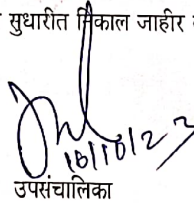 सुधारीत निकाल जाहीर
16/10/23
उपसंचालिका